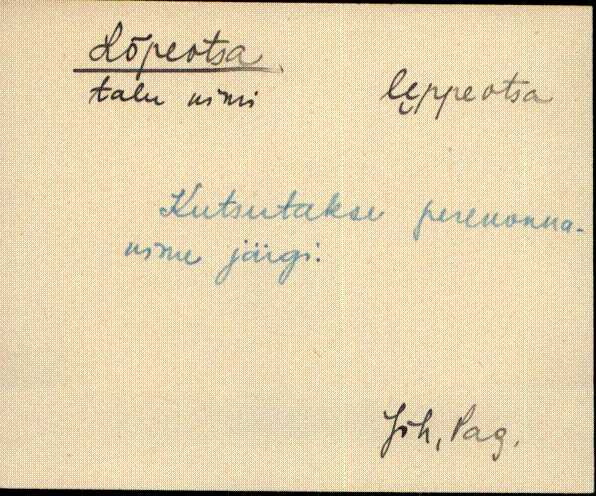 Lõpeotsa
talu nimi
lẹppeotsa
Kutsutakse perekonna-
nime järgi.
Jõh, Pag.